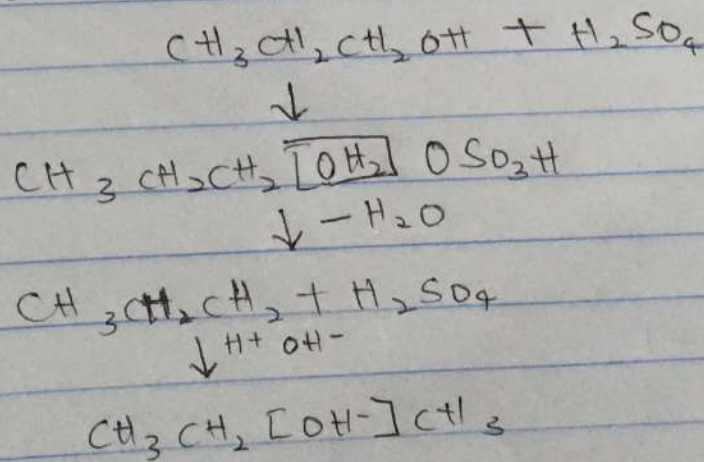 CH₃CH₂CH₂OH + H₂SO₄
↓
CH₃CH₂CH₂[OH₂] OSO₃H
↓ -H₂O
CH₃CH₂CH₂ + H₂SO₄
↓ H+ OH-
CH₃CH₂[OH-]CH₃